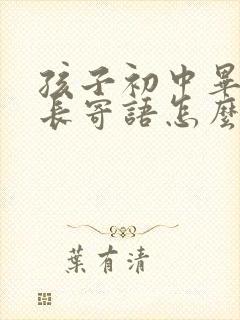 孩子初中畢
長寄語怎麼
葉有清